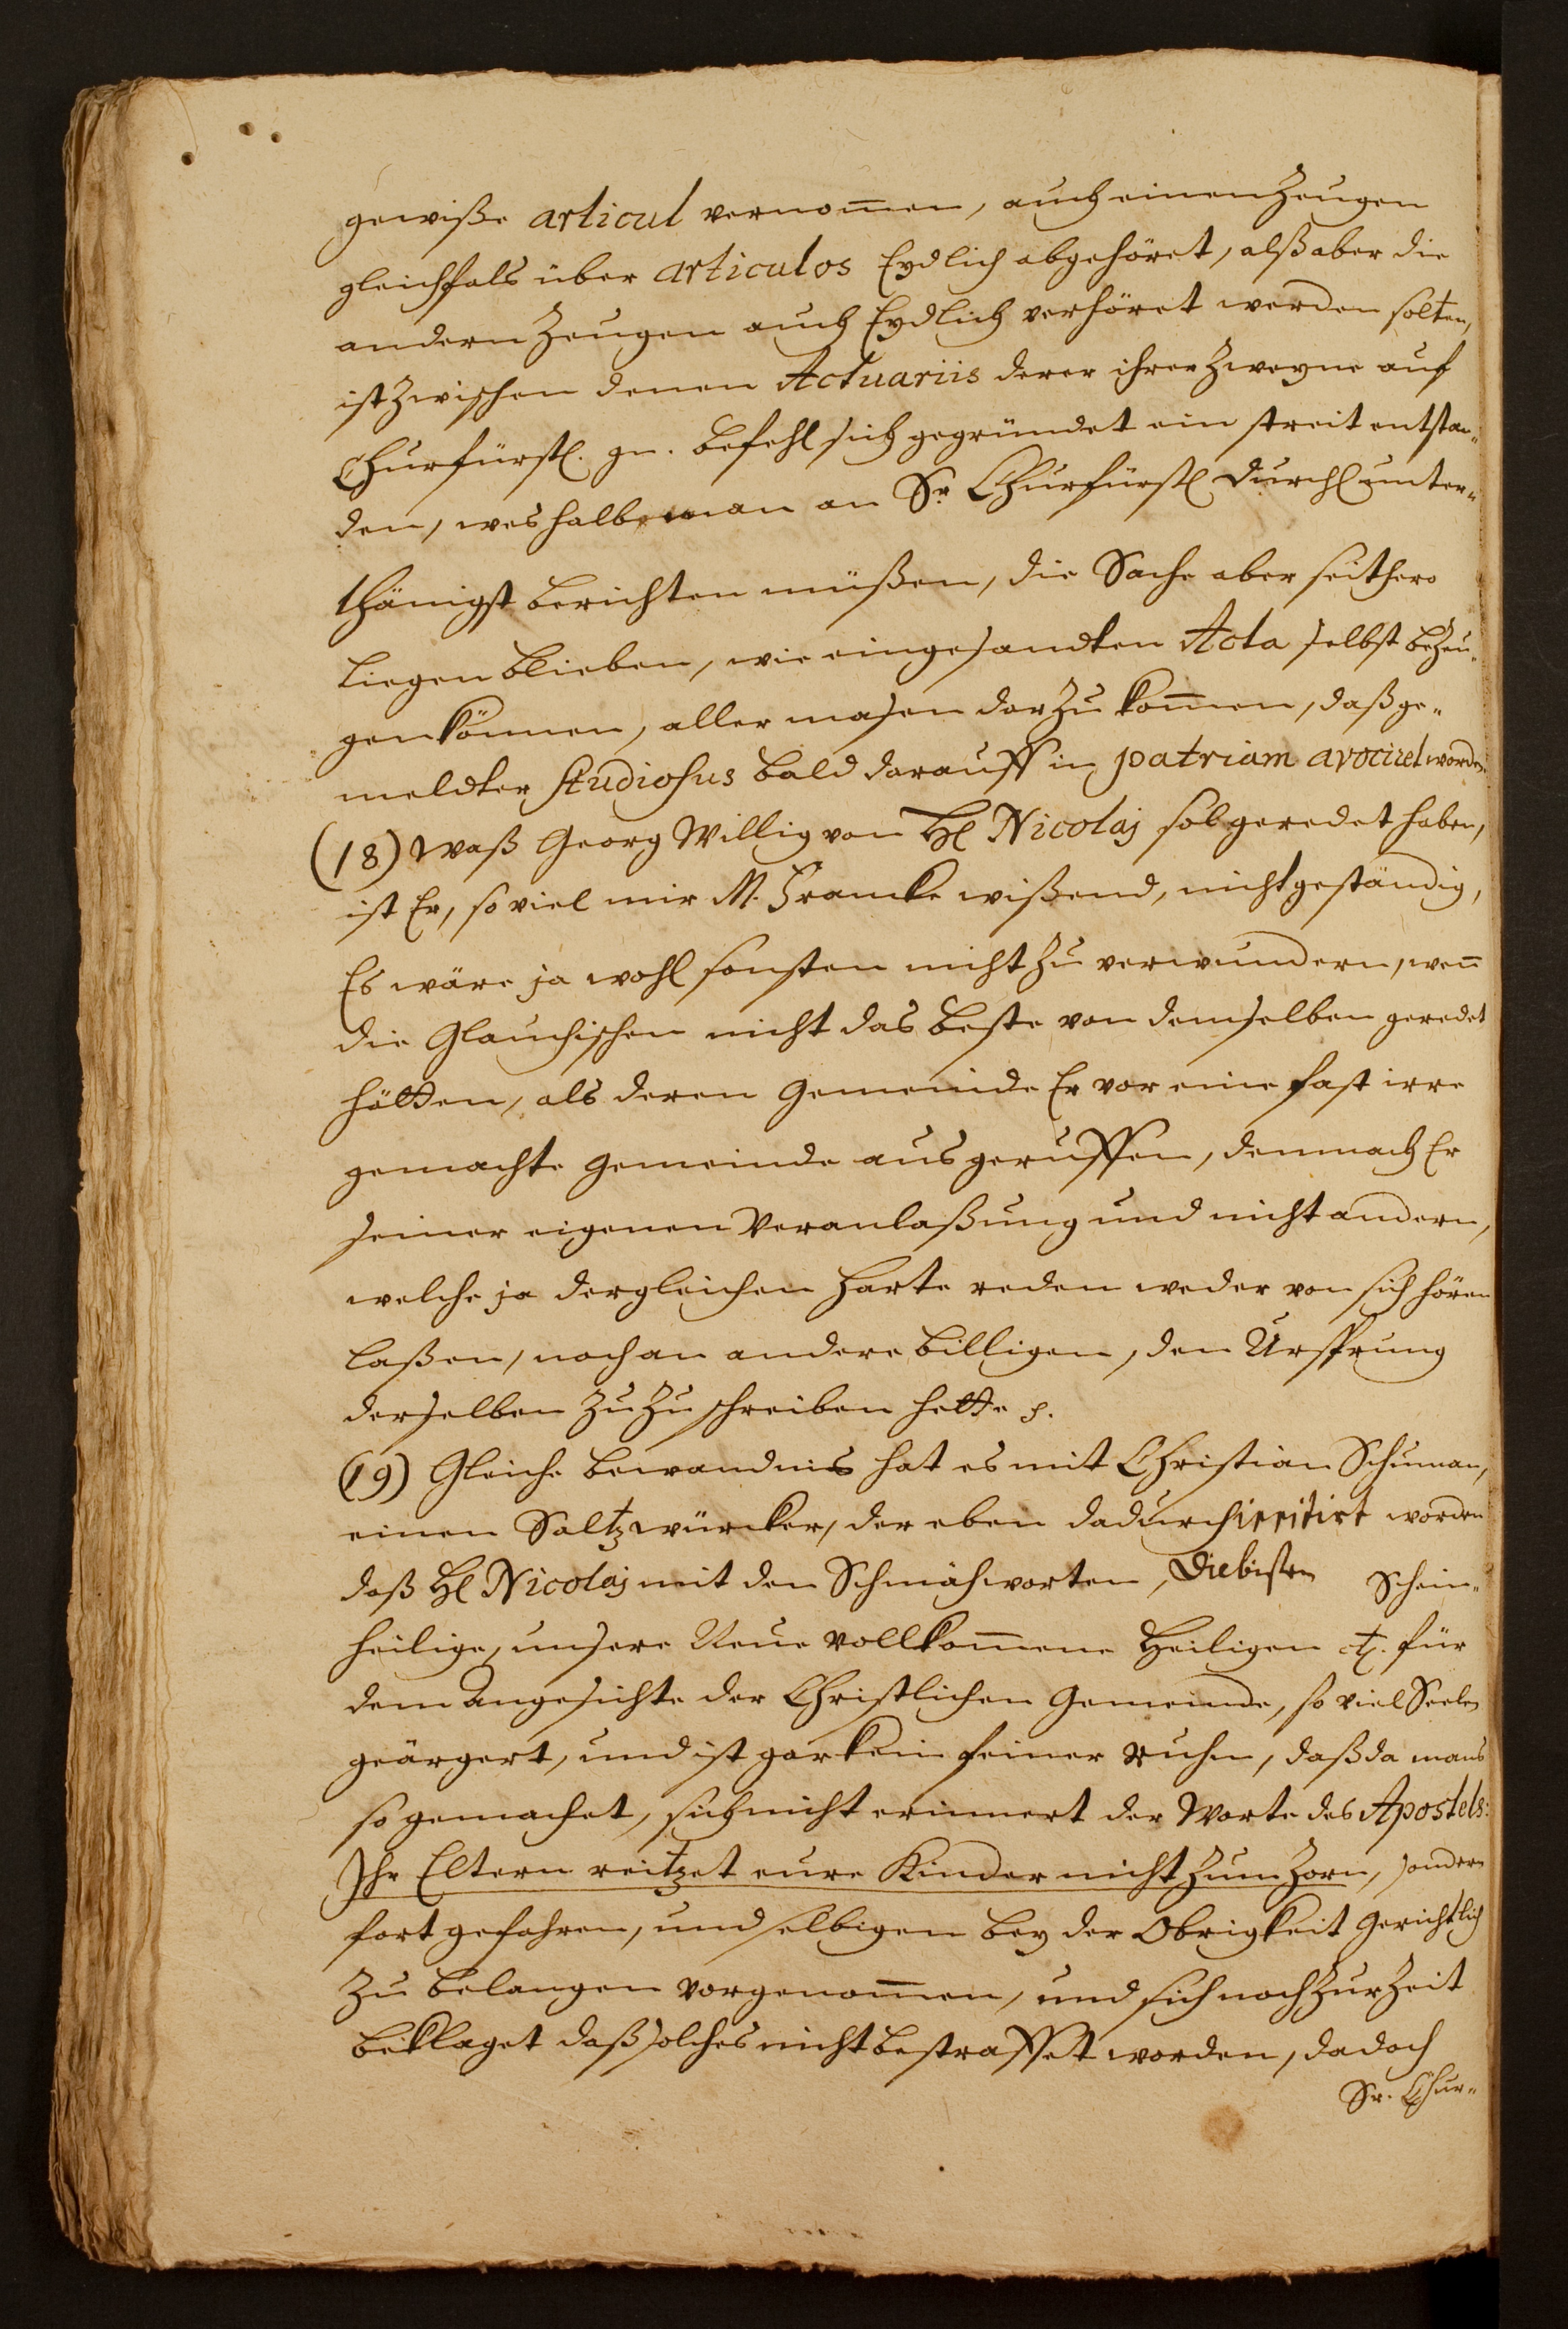 gewiße articul vernom̅en, auch einen Zeugen
gleichfals über articulos Eydlich abgehöret, alß aber die
andern Zeugen auch Eydlich verhöret werden solten,
ist zwischen denen Actuariis derer ihrer zweyne auf
Churfürstl. gn. Befehl sich gegründet ein streit entstan„
den, weshalben man an Sr Churfürstl Durchl unter„
thänigst berichten müßen, die Sache aber seithero
liegen blieben, wie eingesandten Acta selbst bezeu„
gen können, aller masen darzu kom̅en, daß ge„
meldter Studiosus bald darauff in patriam avociret worden
(18) Waß Georg Willig von H Nicolaj sol geredet haben,
ist Er, so viel mir M. Francke wißend, nicht geständig,
Es wäre ja wohl sonsten nicht zu verwundern, wen̅
die Glauchischen nicht das Beste von demselben geredet
hätten, als deren Gemeinde Er vor eine fast irre
gemachte Gemeinde ausgeruffen, demnach Er
seiner eigenen Veranlaßung und nicht andern,
welche ja dergleichen harte reden weder von sich hören
laßen, noch an andern billigen, den Ursprung
derselben zuzuschreiben hette p.
(19) Gleiche bewandnis hat es mit Christian Schuman,
einen Saltzwürcker, der eben dadurch irritirt worden
daß H Nicolaj mit den Schmähworten, Schein„
heilige, unsere Neue vollkom̅ene Heiligen etc. für
dem Angesichte der Christlichen Gemeinde, so viel Seelen
geärgert, und ist gar kein feiner ruhm, daß da mans
so gemachet, sich nicht erinnert der Worte des Apostels:
Ihr Eltern reitzet eure Kinder nicht zum Zorn, sondern
fort gefahren, und selbigen bey der Obrigkeit Gerichtlich
zu belangen vorgenom̅en, und sich noch zur Zeit
beklaget daß solches nicht bestraffet worden, da doch
Sr. Chur„